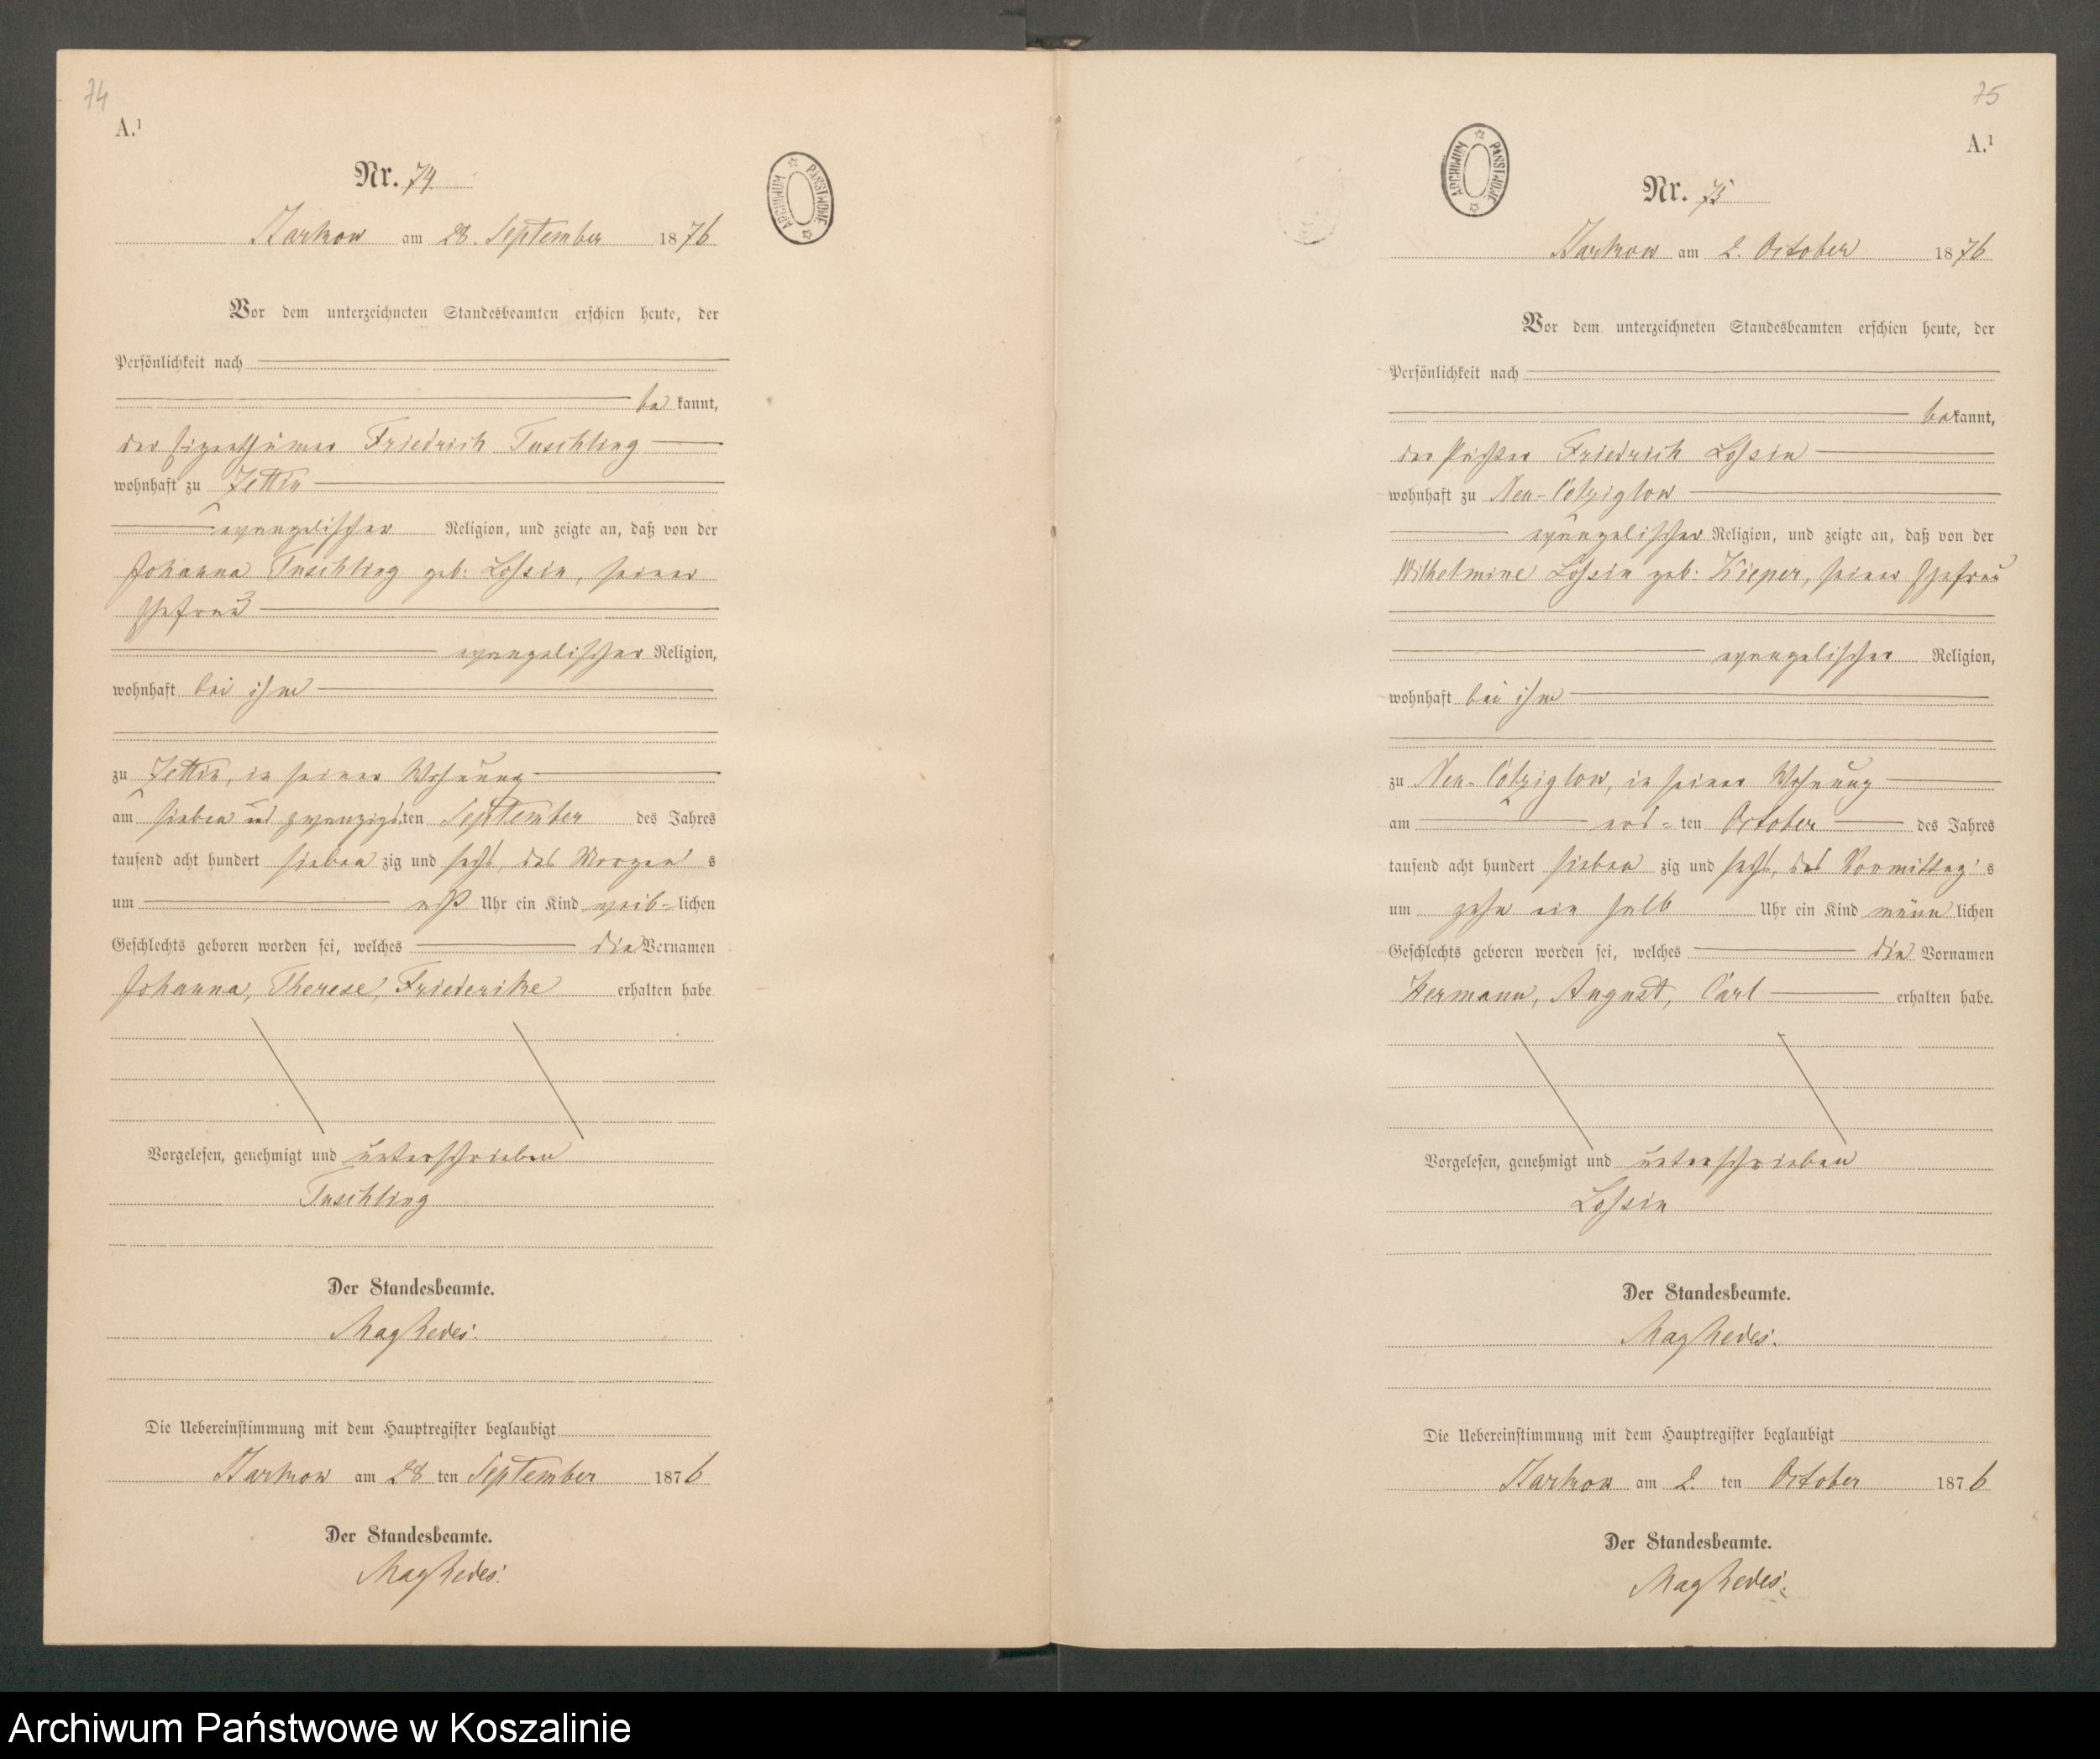 74
A.¹
Nr. 74
Barkow am 28. September 1876
Vor dem unterzeichneten Standesbeamten erschien heute, der
Persönlichkeit nach
be kannt,
der Eigenthümer Friedrich Tuschling
wohnhaft zu Zettin
evangelischer Religion, und zeigte an, daß von der
Johanna Tuschling geb. Lossin, seiner
Ehefrau
evangelischer Religion,
wohnhaft bei ihm
zu Zettin, in seiner Wohnung
am sieben und zwanzigsten September des Jahres
tausend acht hundert sieben zig und sechs, des Morgen s
um acht Uhr ein Kind weib-lichen
Geschlechts geboren worden sei, welches die Vornamen
Johanna, Therese, Friederike erhalten habe
Vorgelesen, genehmigt und unterschrieben
Tuschling
Der Standesbeamte.
Die Uebereinstimmung mit dem Hauptregister beglaubigt
Barkow am 28 ten September 1876
Der Standesbeamte.
ARCHIWUM PAŃSTWOWE
75
A.¹
Nr. 75
Barkow am 2. October 1876
Vor dem unterzeichneten Standesbeamten erschien heute, der
Persönlichkeit nach
bekannt,
der Pächter Friedrich Lossin
wohnhaft zu Neu-Cölziglow
evangelischer Religion, und zeigte an, daß von der
Wilhelmine Lossin geb. Kieper, seiner Ehefrau
evangelischer Religion,
wohnhaft bei ihm
zu Neu-Cölziglow, in seiner Wohnung
am ers-ten October des Jahres
tausend acht hundert sieben zig und sechs, des Vormittag's
um zehn ein halb Uhr ein Kind männ lichen
Geschlechts geboren worden sei, welches die Vornamen
Hermann, August, Carl erhalten habe.
Vorgelesen, genehmigt und unterschrieben
Lossin
Der Standesbeamte.
Die Uebereinstimmung mit dem Hauptregister beglaubigt
Barkow am 2. ten October 1876
Der Standesbeamte.
ARCHIWUM PAŃSTWOWE
Archiwum Państwowe w Koszalinie